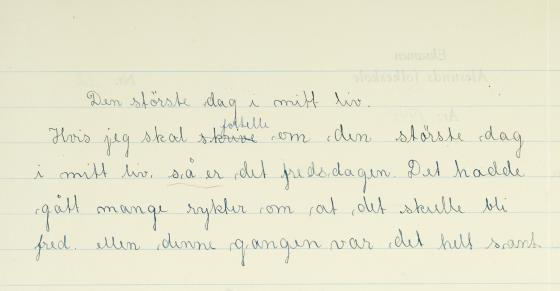 Den störste dag i mitt liv.
fortelle
Hvis jeg skal skrive om den störste dag
i mitt liv. så er det fredsdagen. Det hadde
gått mange rykter om at det skulle bli
fred. ellen denne gangen var det helt sant.